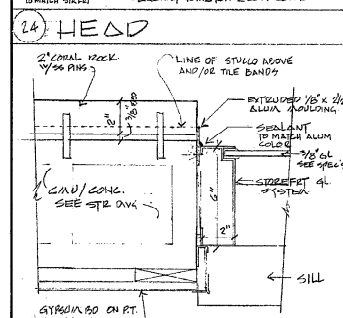 24 HEAD
2" CORAL ROCK
W/SS PINS
LINE OF STUCCO ABOVE
AND/OR TILE BANDS
EXTRUDED 1/8" x 2 1/2
ALUM MOULDING
SEALANT
TO MATCH ALUM
COLOR
3/8" GL
SEE SPEC'S
STOREFRT GL
SYSTEM
2"
3/8"
6"
2"
CMU/CONC.
SEE STR DWG
SILL
GYPSUM BD ON P.T.